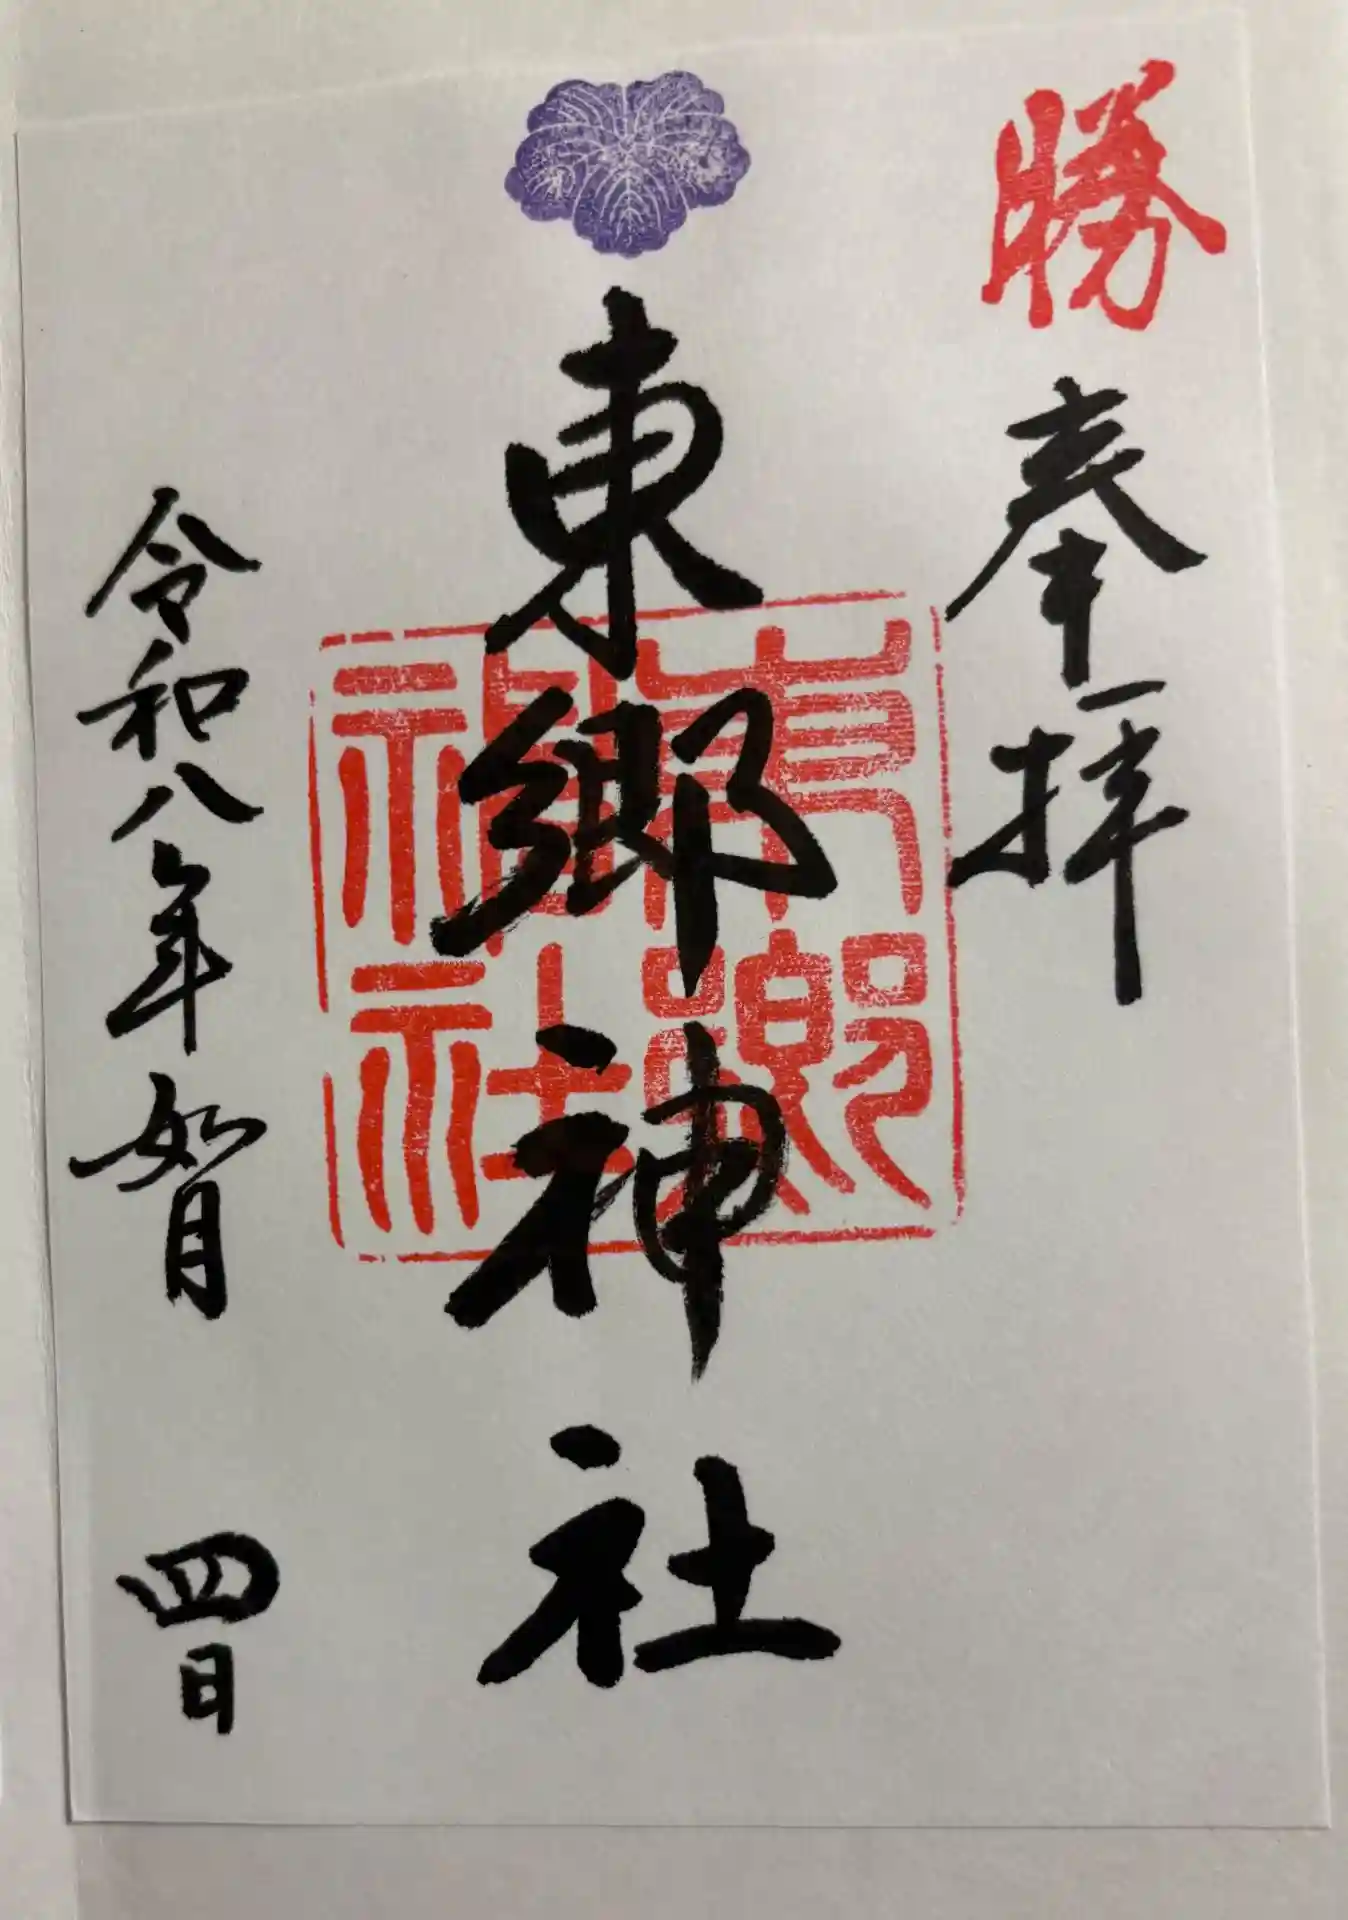 勝
奉拝
東郷神社
東郷神社
令和八年如月 四日